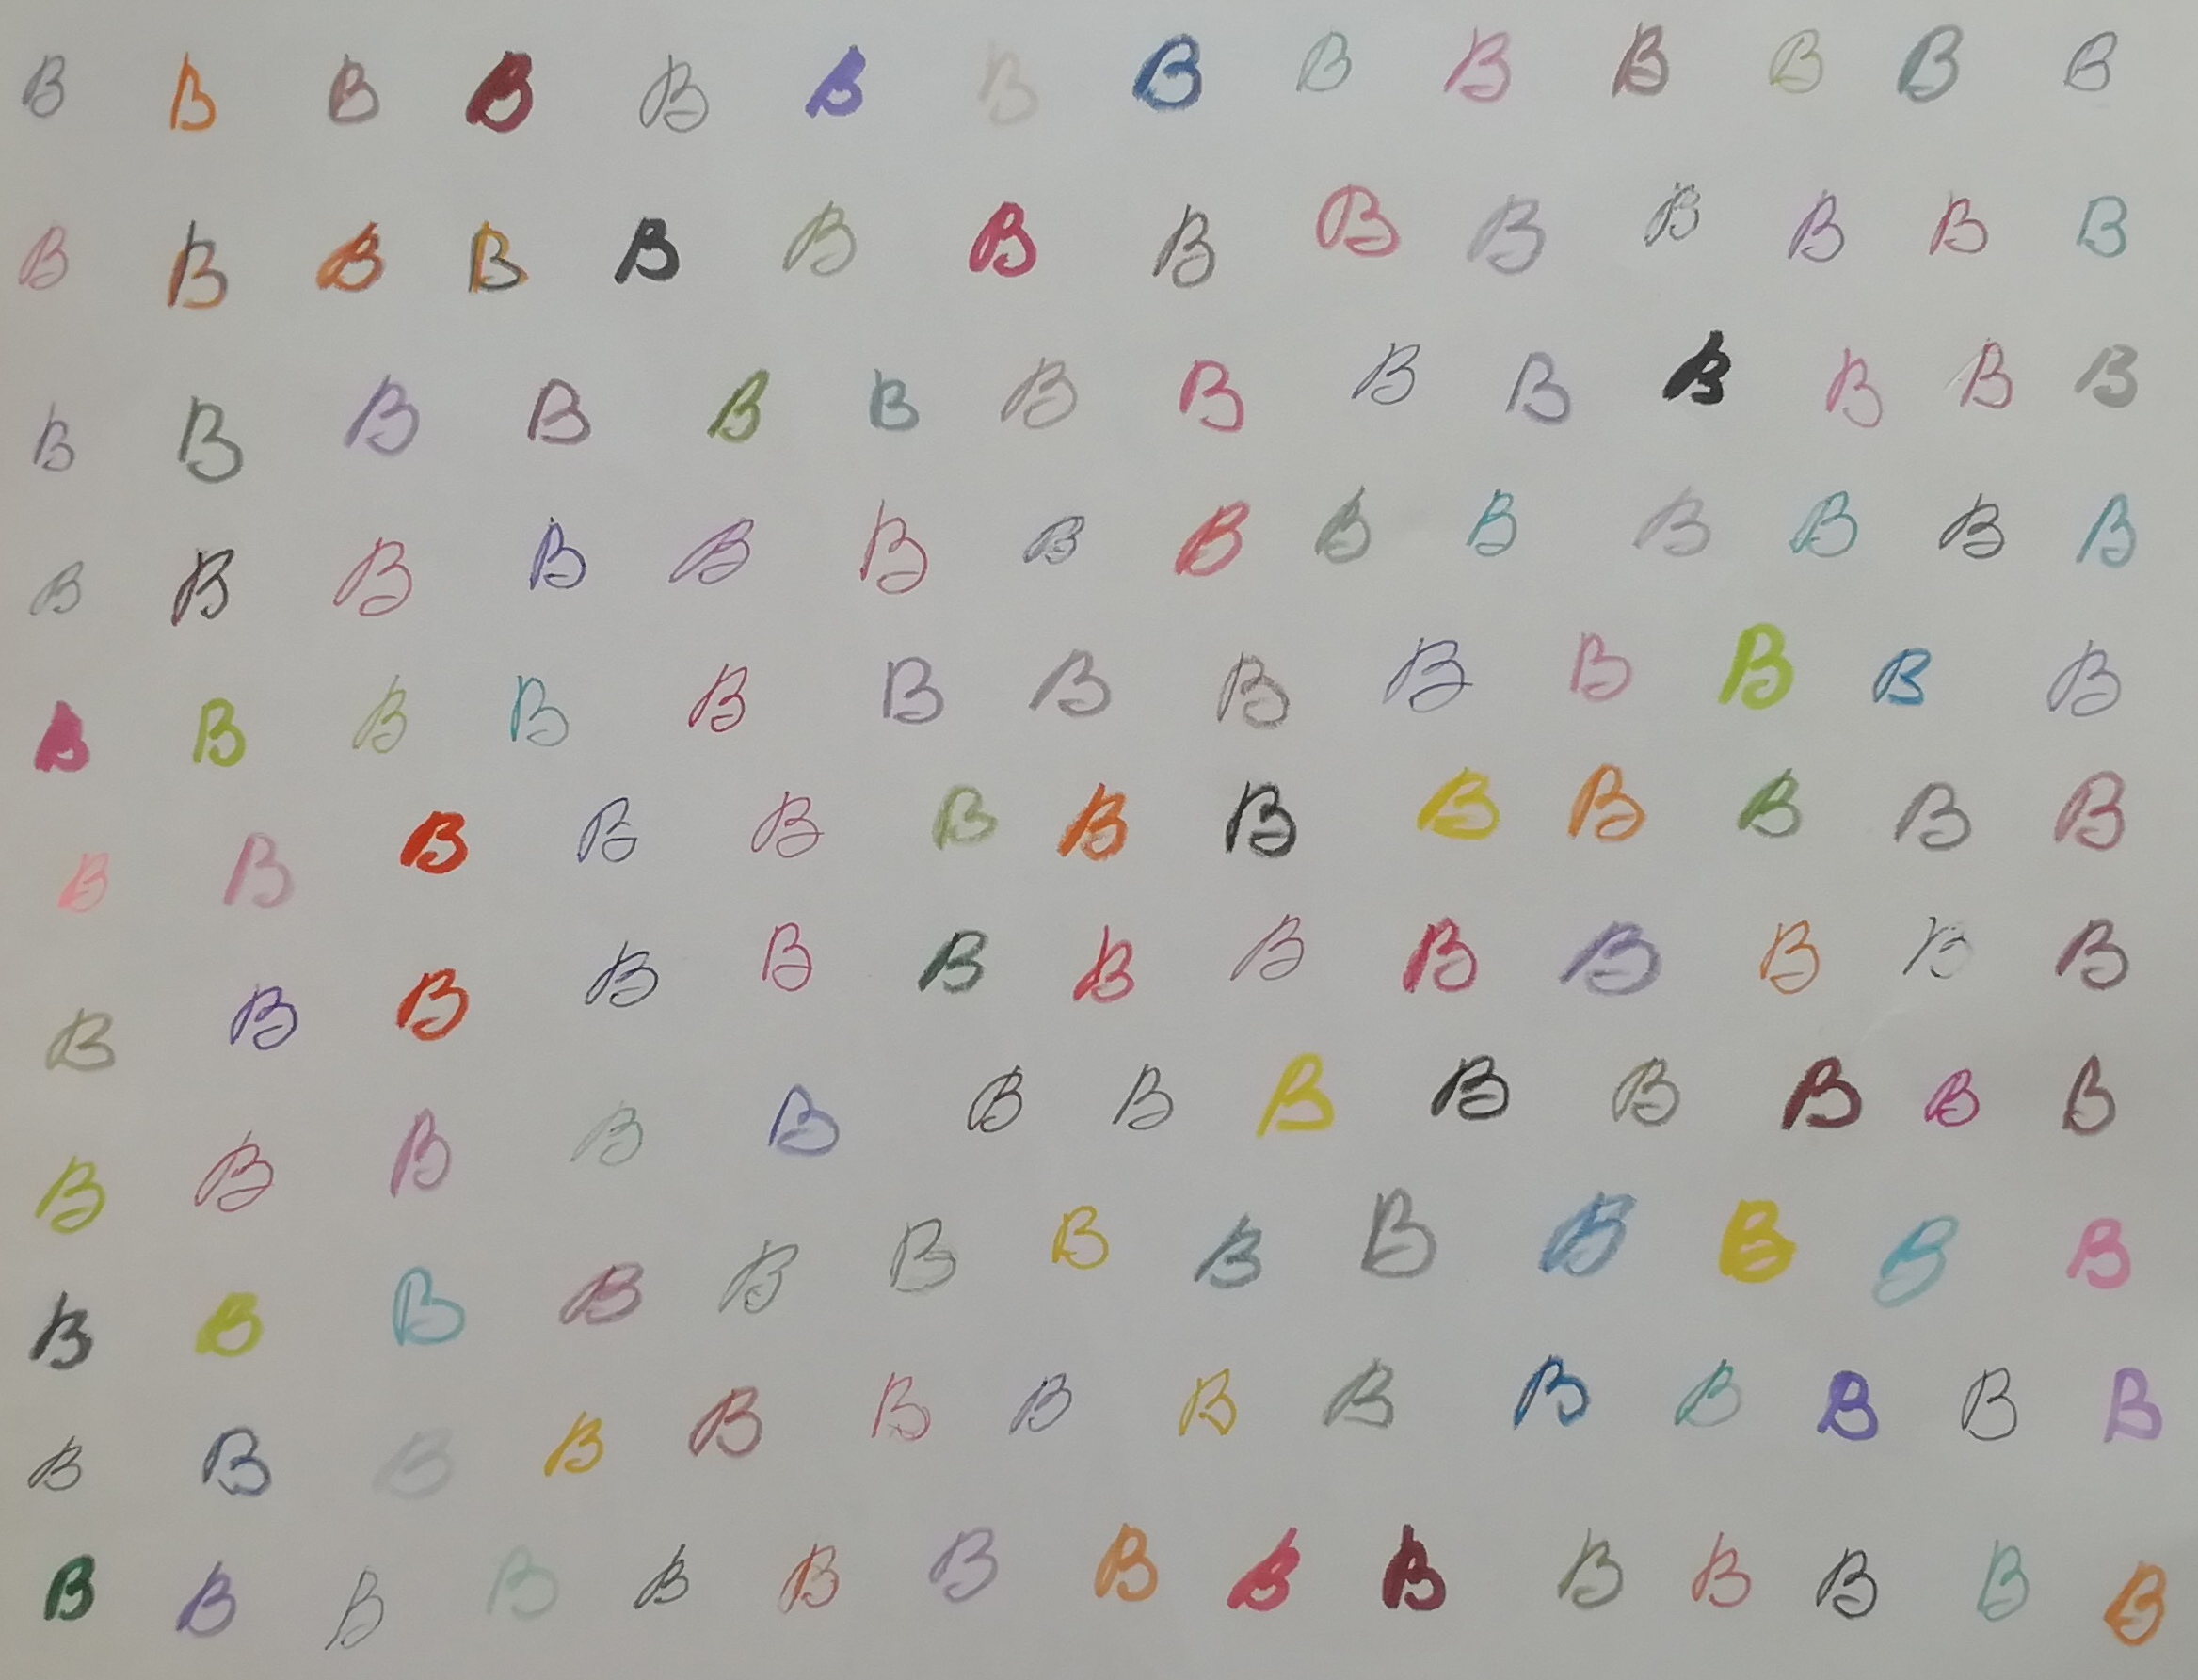 B B B B B B B B B B B B B B
B B B B B B B B B B B B B B
B B B B B B B B B B B B B B
B B B B B B B B B B B B B B
B B B B B B B B B B B B B
B B B B B B B B B B B B B
B B B B B B B B B B B B B
B B B B B B B B B B B B
B B B B B B B B B B B B
B B B B B B B B B B B B B
B B B B B B B B B B B B B B B